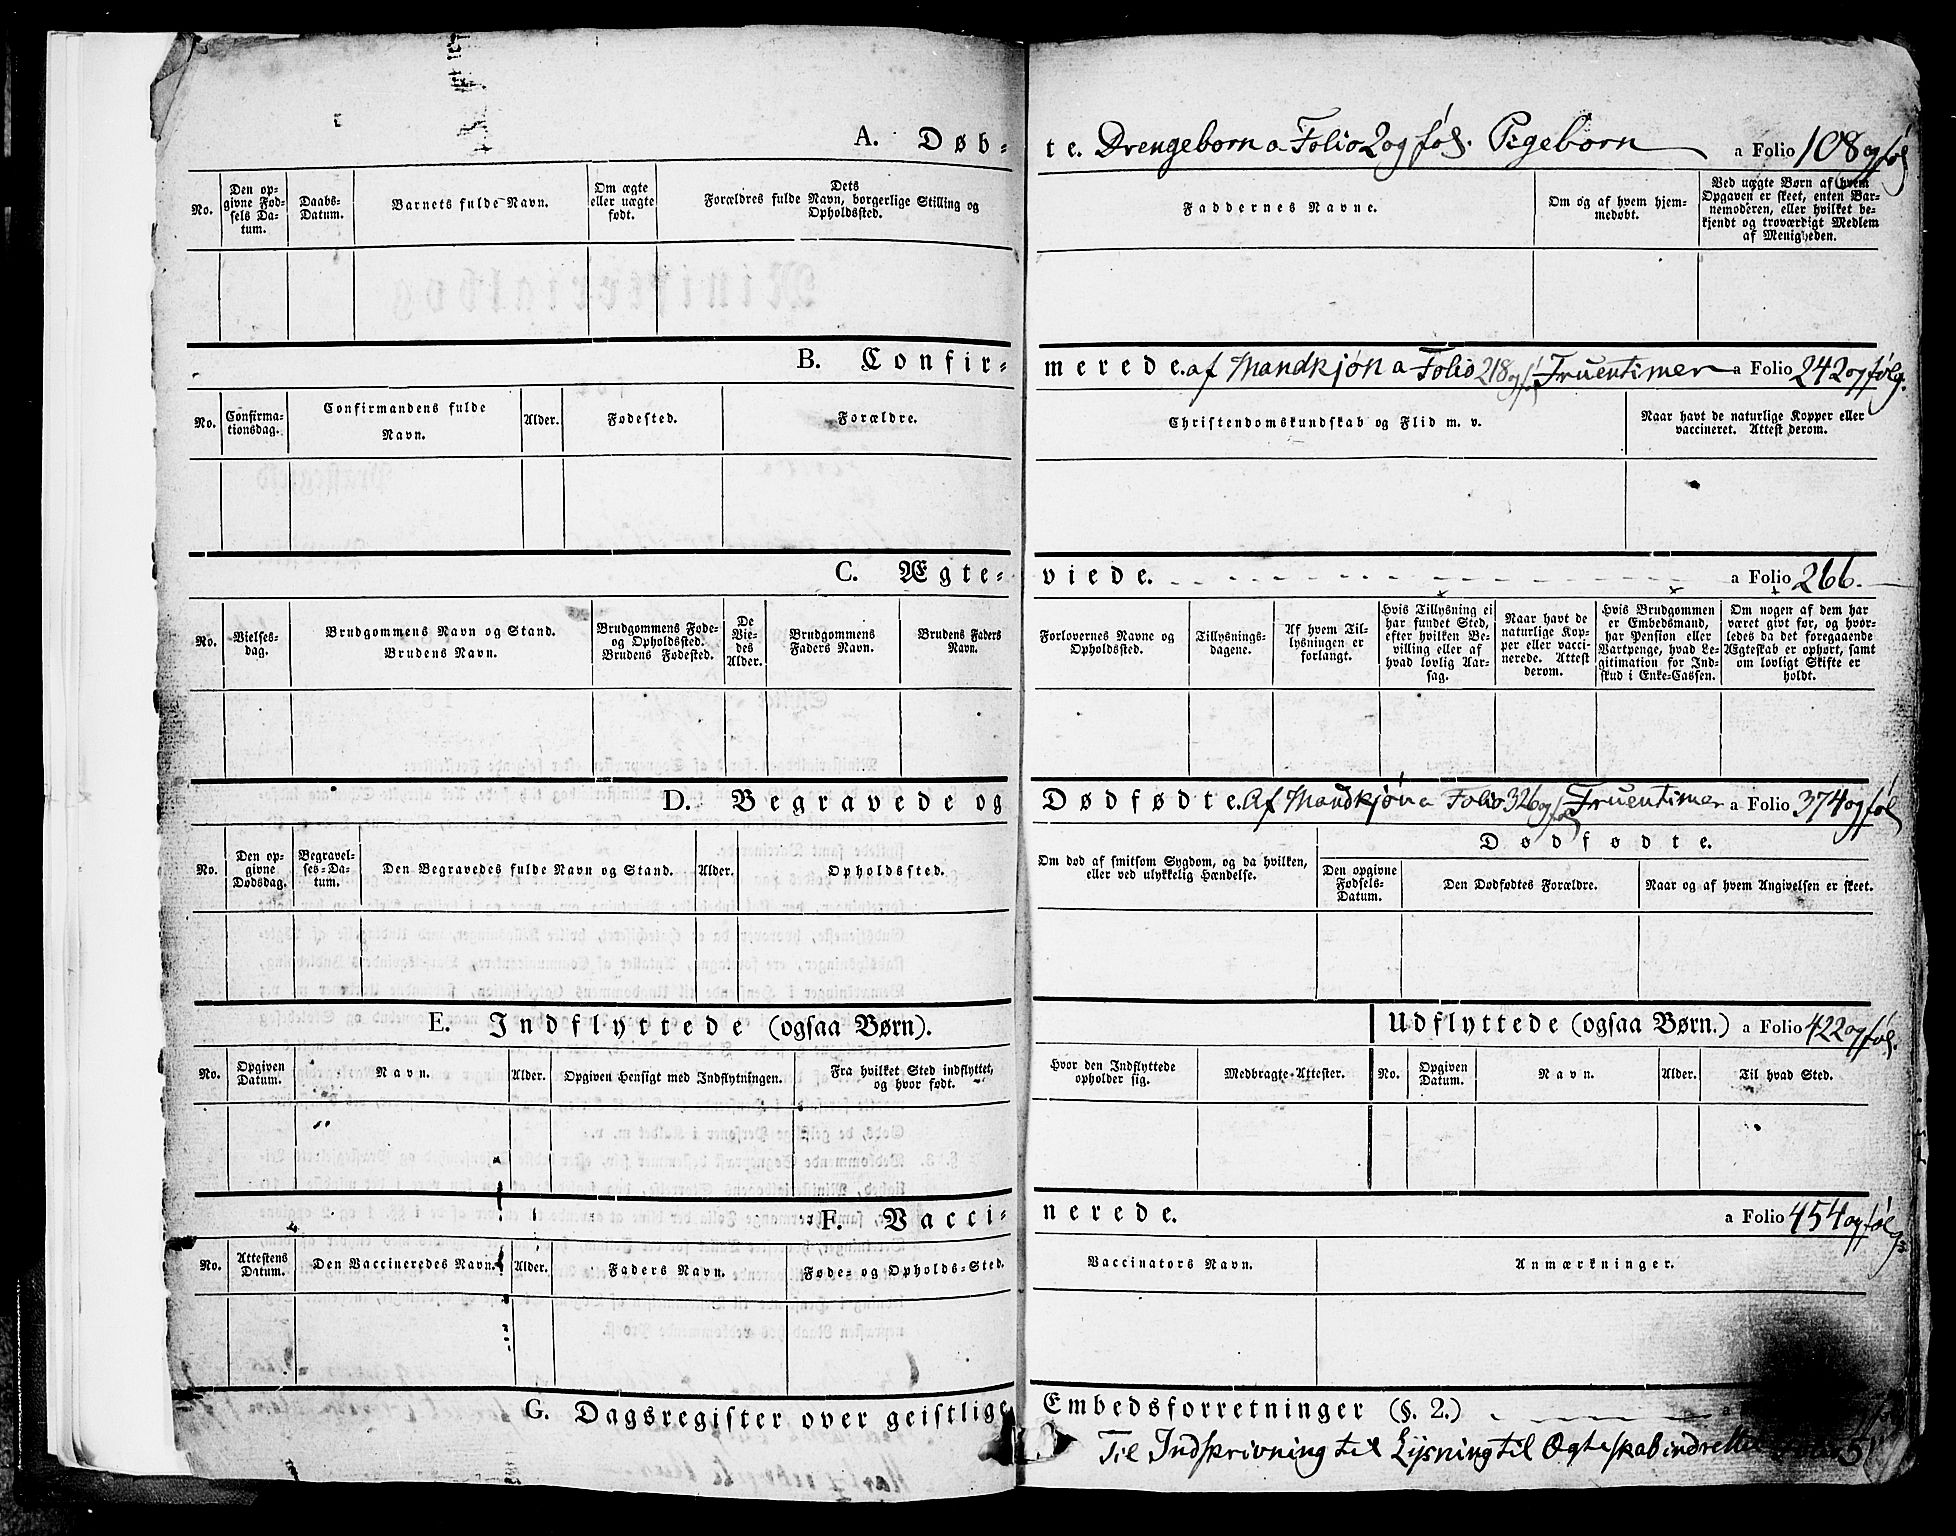 A. Døb-
te. Drengeborn a Folio 2 og føl. Pigeborn a Folio 108 og føl
No.
Den op-
givne Fød-
sels Da-
tum.
Daabs-
Datum.
Barnets fulde Navn.
Om ægte
eller uægte
født.
Dets
Forældres fulde Navn, borgerlige Stilling og
Opholdssted.
Faddernes Navne.
Om og af hvem hjem-
medøbt.
Ved uægte Børn af hvem
Opgaven er skeet, enten Bar-
nemoderen, eller hvilket be-
kjendt og troværdigt Medlem
af Menigheden.
B. Confir-
merede. af Mandkjøn a Folio 218 og føl Fruentimer a Folio 242 og følg.
No.
Confirma-
tionsdag.
Confirmandens fulde
Navn.
Alder.
Fødested.
Forældre.
Christendomskundskab og Flid m. v.
Naar havt de naturlige Kopper eller
vaccineret. Attest derom.
C. Ægte-
viede. a Folio 266.
No.
Vielses-
dag.
Brudgommens Navn og Stand.
Brudens Navn.
Brudgommens Føde-
og Opholdssted.
Brudens Fødested.
De
Vie-
des
Alder.
Brudgommens
Faders Navn.
Brudens Faders
Navn.
Forlovernes Navne og
Opholdssted.
Tillysnings-
dagene.
Af hvem Til-
lysningen er
forlangt.
Hvis Tillysning ei
har fundet Sted,
efter hvilken Be-
villing eller af
hvad lovlig Aar-
sag.
Naar havt de
naturlige Kop-
per eller vacci-
nerede. Attest
derom.
Hvis Brudgommen
er Embedsmand,
har Pension eller
Vartpenge, hvad Le-
gitimation for Ind-
skud i Enke-Cassen.
Om nogen af dem har
været givt før, og hvor-
ledes da det foregaaende
Ægteskab er ophørt, samt
om lovligt Skifte er
holdt.
D. Begravede og
Dødfødte. Af Mandkjøn a Folio 326 og føl Fruentimer a Folio 374 og føl
No.
Den op-
givne
Dødsdag.
Begravel-
ses-Da-
tum.
Den Begravedes fulde Navn og Stand.
Alder.
Opholdssted.
Om død af smitsom Sygdom, og da hvilken,
eller ved ulykkelig Hændelse.
Dødfødte.
Den opgivne
Fødsels-
Datum.
Den Dødfødtes Forældre.
Naar og af hvem Angivelsen er skeet.
E. Indflyttede (ogsaa Børn).
Udflyttede (ogsaa Børn.) a Folio 422 og føl.
No.
Opgiven
Datum.
Navn.
Alder.
Opgiven Hensigt med Indflytningen.
Fra hvilket Sted indflyttet,
og hvor født.
Hvor den Indflyttede
opholder sig.
Medbragte Attester.
No.
Opgiven
Datum.
Navn.
Alder.
Til hvad Sted.
F. Vacci-
nerede. a Folio 454 og følg:
No.
Attestens
Datum.
Den Vaccineredes Navn.
Alder.
Faders Navn.
Føde- og Opholds-Sted.
Vaccinators Navn.
Anmærkninger.
G. Dagsregister over geistlige
Embedsforretninger (§. 2.) a
Til Indskrivning til Lysning til Ægteskab indrettet